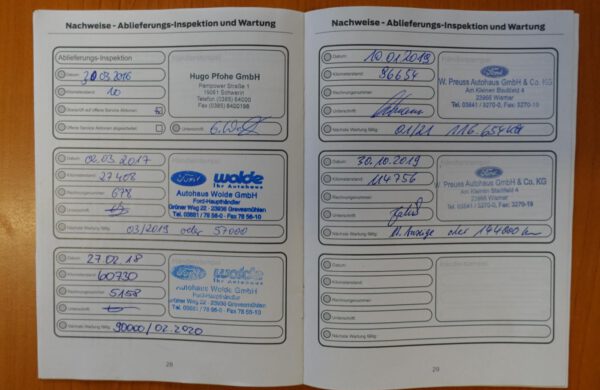 Nachweise - Ablieferungs-Inspektion und Wartung
Ablieferungs-Inspektion
Datum 30.03.2016
Kilometerstand 10
Überprüft auf offene Service Aktionen
Offene Service Aktionen abgearbeitet
Unterschrift
Hugo Pfohe GmbH
Rampower Straße 1
19061 Schwerin
Telefon (0385) 64000
Fax (0385) 6400198
Datum 02.03.2017
Kilometerstand 27408
Rechnungsnummer 678
Unterschrift
Nächste Wartung fällig 03/2019 oder 57000
Händlerstempel
Ford wolde
Ihr Autohaus
Autohaus Wolde GmbH
Ford-Haupthändler
Grüner Weg 22 · 23936 Grevesmühlen
Tel. 03881 / 78 56-0 · Fax 78 56-10
Datum 27.02.18
Kilometerstand 60730
Rechnungsnummer 5158
Unterschrift
Nächste Wartung fällig 90000/02.2020
Händlerstempel
Ford wolde
Ihr Autohaus
Autohaus Wolde GmbH
Ford-Haupthändler
Grüner Weg 22 · 23936 Grevesmühlen
Tel. 03881 / 78 56-0 · Fax 78 56-10
28
Nachweise - Ablieferungs-Inspektion und Wartung
Datum 10.01.2019
Kilometerstand 86654
Rechnungsnummer
Unterschrift
Nächste Wartung fällig 01/21 116.654
Ford
W. Preuss Autohaus GmbH & Co. KG
Am Kleinen Stadtfeld 4
23966 Wismar
Tel. 03841 / 3270-0, Fax: 3270-19
Datum 30.10.2019
Kilometerstand 114756
Rechnungsnummer
Unterschrift
Nächste Wartung fällig n. Anzeige oder 144000 km
Händlerstempel
Ford
W. Preuss Autohaus GmbH & Co. KG
Am Kleinen Stadtfeld 4
23966 Wismar
Tel. 03841 / 3270-0, Fax: 3270-19
Datum
Kilometerstand
Rechnungsnummer
Unterschrift
Nächste Wartung fällig
Händlerstempel
29